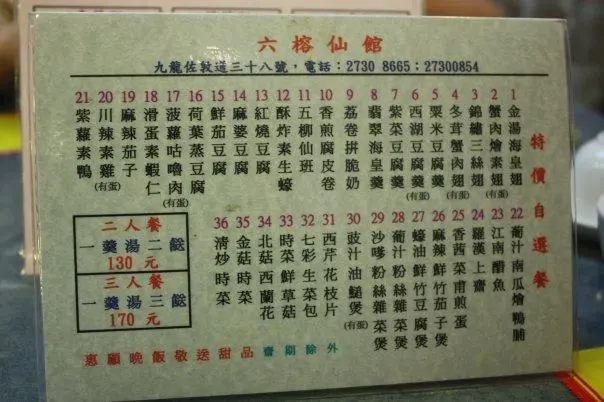 六榕仙館
九龍佐敦道三十八號，電話：2730 8665：27300854
特價自選餐
1 金湯海皇翅
2 蟹肉燴生翅(有蛋)
3 錦繡三絲翅
4 冬茸蟹肉翅
5 粟米豆腐羹
6 西湖豆腐羹(有蛋)
7 紫菜豆腐羹
8 翡翠海皇羹
9 荔卷拼脆奶
10 香煎腐皮卷
11 五柳仙班
12 酥炸素生蠔
13 紅燒豆腐
14 麻婆豆腐
15 鮮菇豆腐
16 荷葉蒸豆腐
17 菠蘿咕嚕肉(有蛋)
18 滑蛋素蝦仁
19 麻辣茄子
20 川辣素雞(有蛋)
21 紫蘿素鴨
22 葡汁南瓜燴鴨脯
23 江南醋魚
24 羅漢上齋
25 香茜菜煎蛋
26 麻辣鮮竹茄子
27 蠔油鮮竹豆腐煲
28 葡汁粉絲雜菜煲
29 沙嗲粉絲雜菜煲
30 豉汁魚䭔(有蛋)
31 西芹花枝片
32 七彩生菜包
33 時菜鮮草菇
34 北菇西蘭花
35 金菇時菜
36 清炒時菜
二人餐
一羹湯二餸
130 元
三人餐
一羹湯三餸
170 元
惠顧晚飯敬送甜品 齋期除外